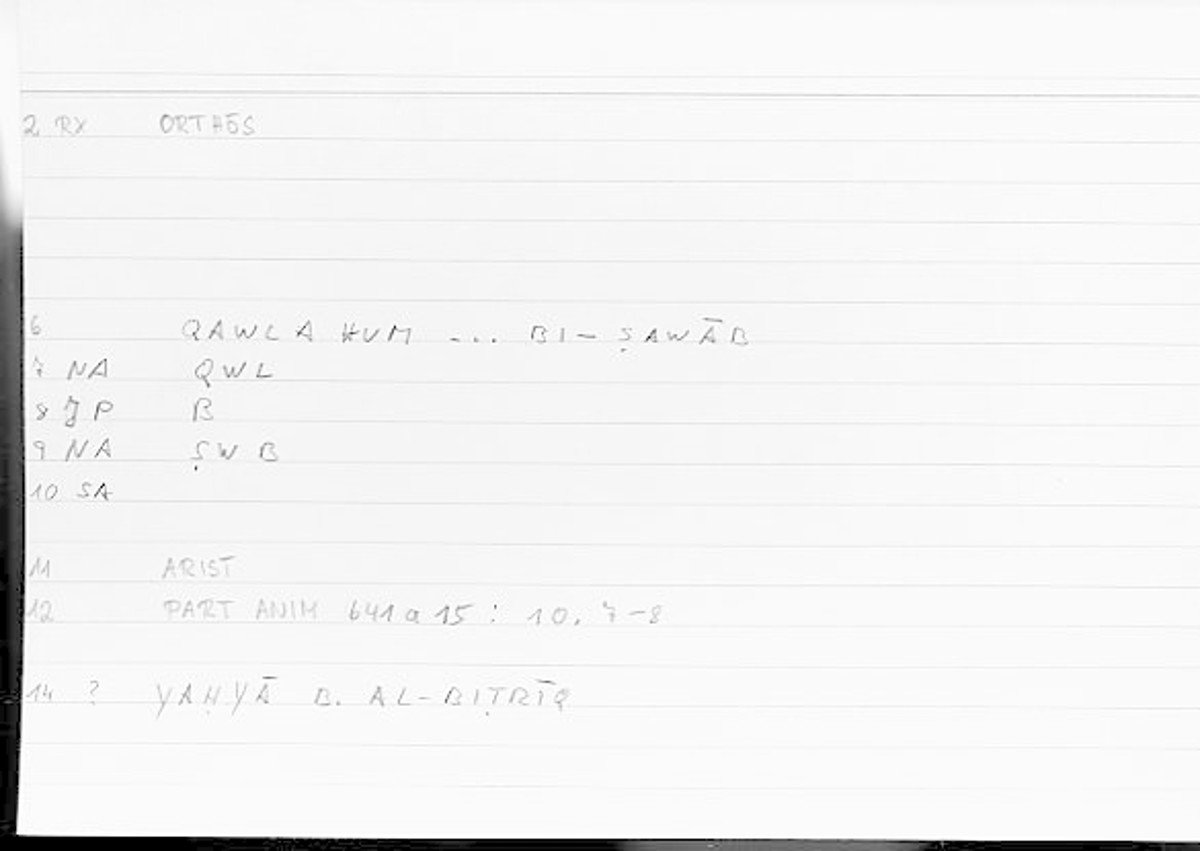 2 RX ORTHŌS
6 QAWLAHUM ... BI-ṢAWĀB
7 NA QWL
8 JP B
9 NA ṢWB
10 SA
11 ARIST
12 PART ANIM 641a15 : 10, 7-8
14 ? YAḤYĀ B. AL-BIṬRĪQ